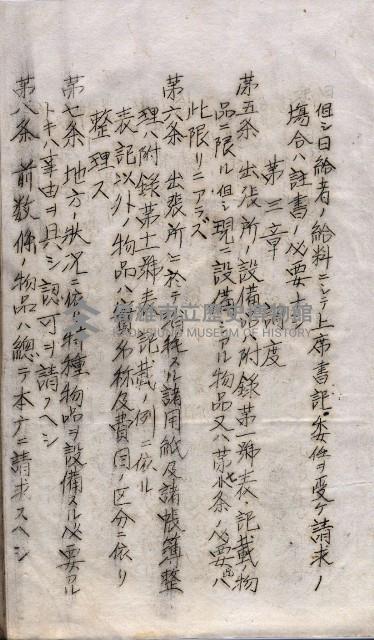 但シ日給者ノ給料ニシテ上席書記ノ委任ヲ受ケ請求ノ
場合ハ証書ノ必要ナシ
第三章 調度
第五条 出張所ノ設備ハ附録第 号表記載ノ物
品ニ限ル但シ現ニ設備シアル物品又ハ第七条ノ必要品ハ
此限リニアラズ
第六条 出張所ニ於テ消耗スル諸用紙及諸帳簿整
理ハ附録第十一号表記載ノ例ニ依ル
表記以外ノ物品ハ 名称及費目ノ区分ニ依リ
整理ス
第七条 地方ノ状況ニ依リ特種物品ヲ設備スル必要アル
トキハ事由ヲ具シ認可ヲ請フヘシ
第八条 前数條ノ物品ハ總テ本店ニ請求スヘシ
高雄市立歷史博物館
KAOHSIUNG MUSEUM OF HISTORY